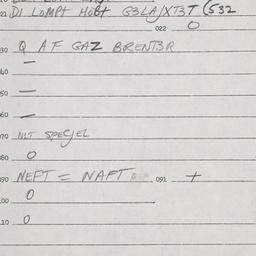 DI LOMPT HOBT G3LA/XT3T (532
022 O
30 Q AF GAZ BRENT3R
40 —
50 —
60 —
70 NLT SPECJEL
80 O
90 NEFT = NAFT 091 +
00 O
10 O